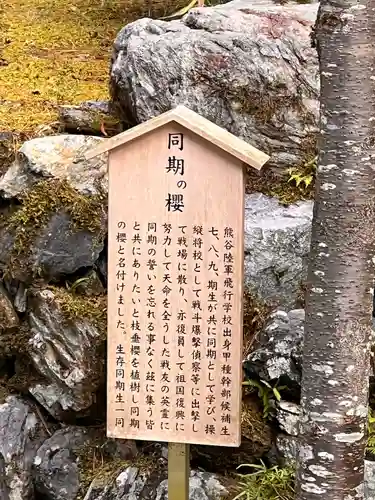 同期の櫻
熊谷陸軍飛行学校出身甲種幹部候補生
七、八、九、期生が共に同期として学び、操
縦将校として戦斗爆撃偵察等に出撃し
て戦場に散り、亦復員して祖国復興に
努力して天命を全うした戦友の英霊に
同期の誓いを忘れる事なく玆に集う皆
と共にありたいと枝垂櫻を植樹し同期
の櫻と名付けました。　生存同期生一同